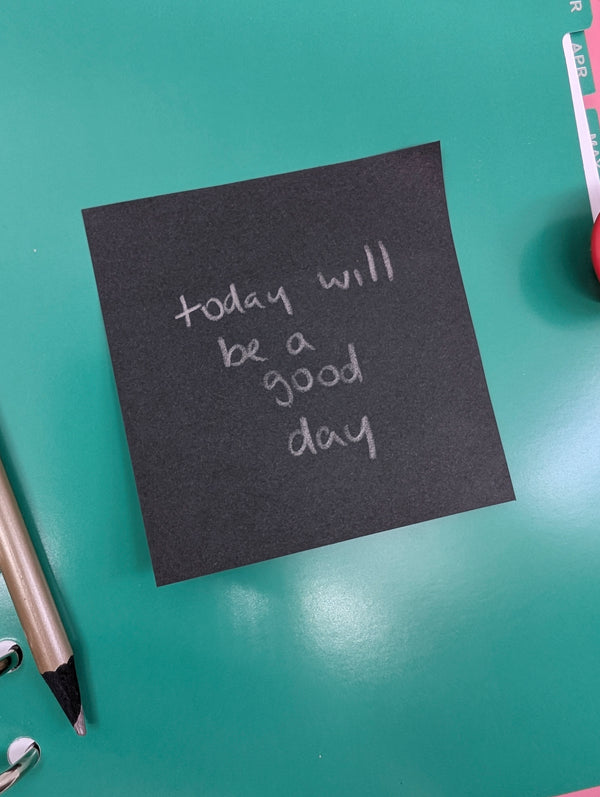 today will
be a
good
day
R
APR
MAY